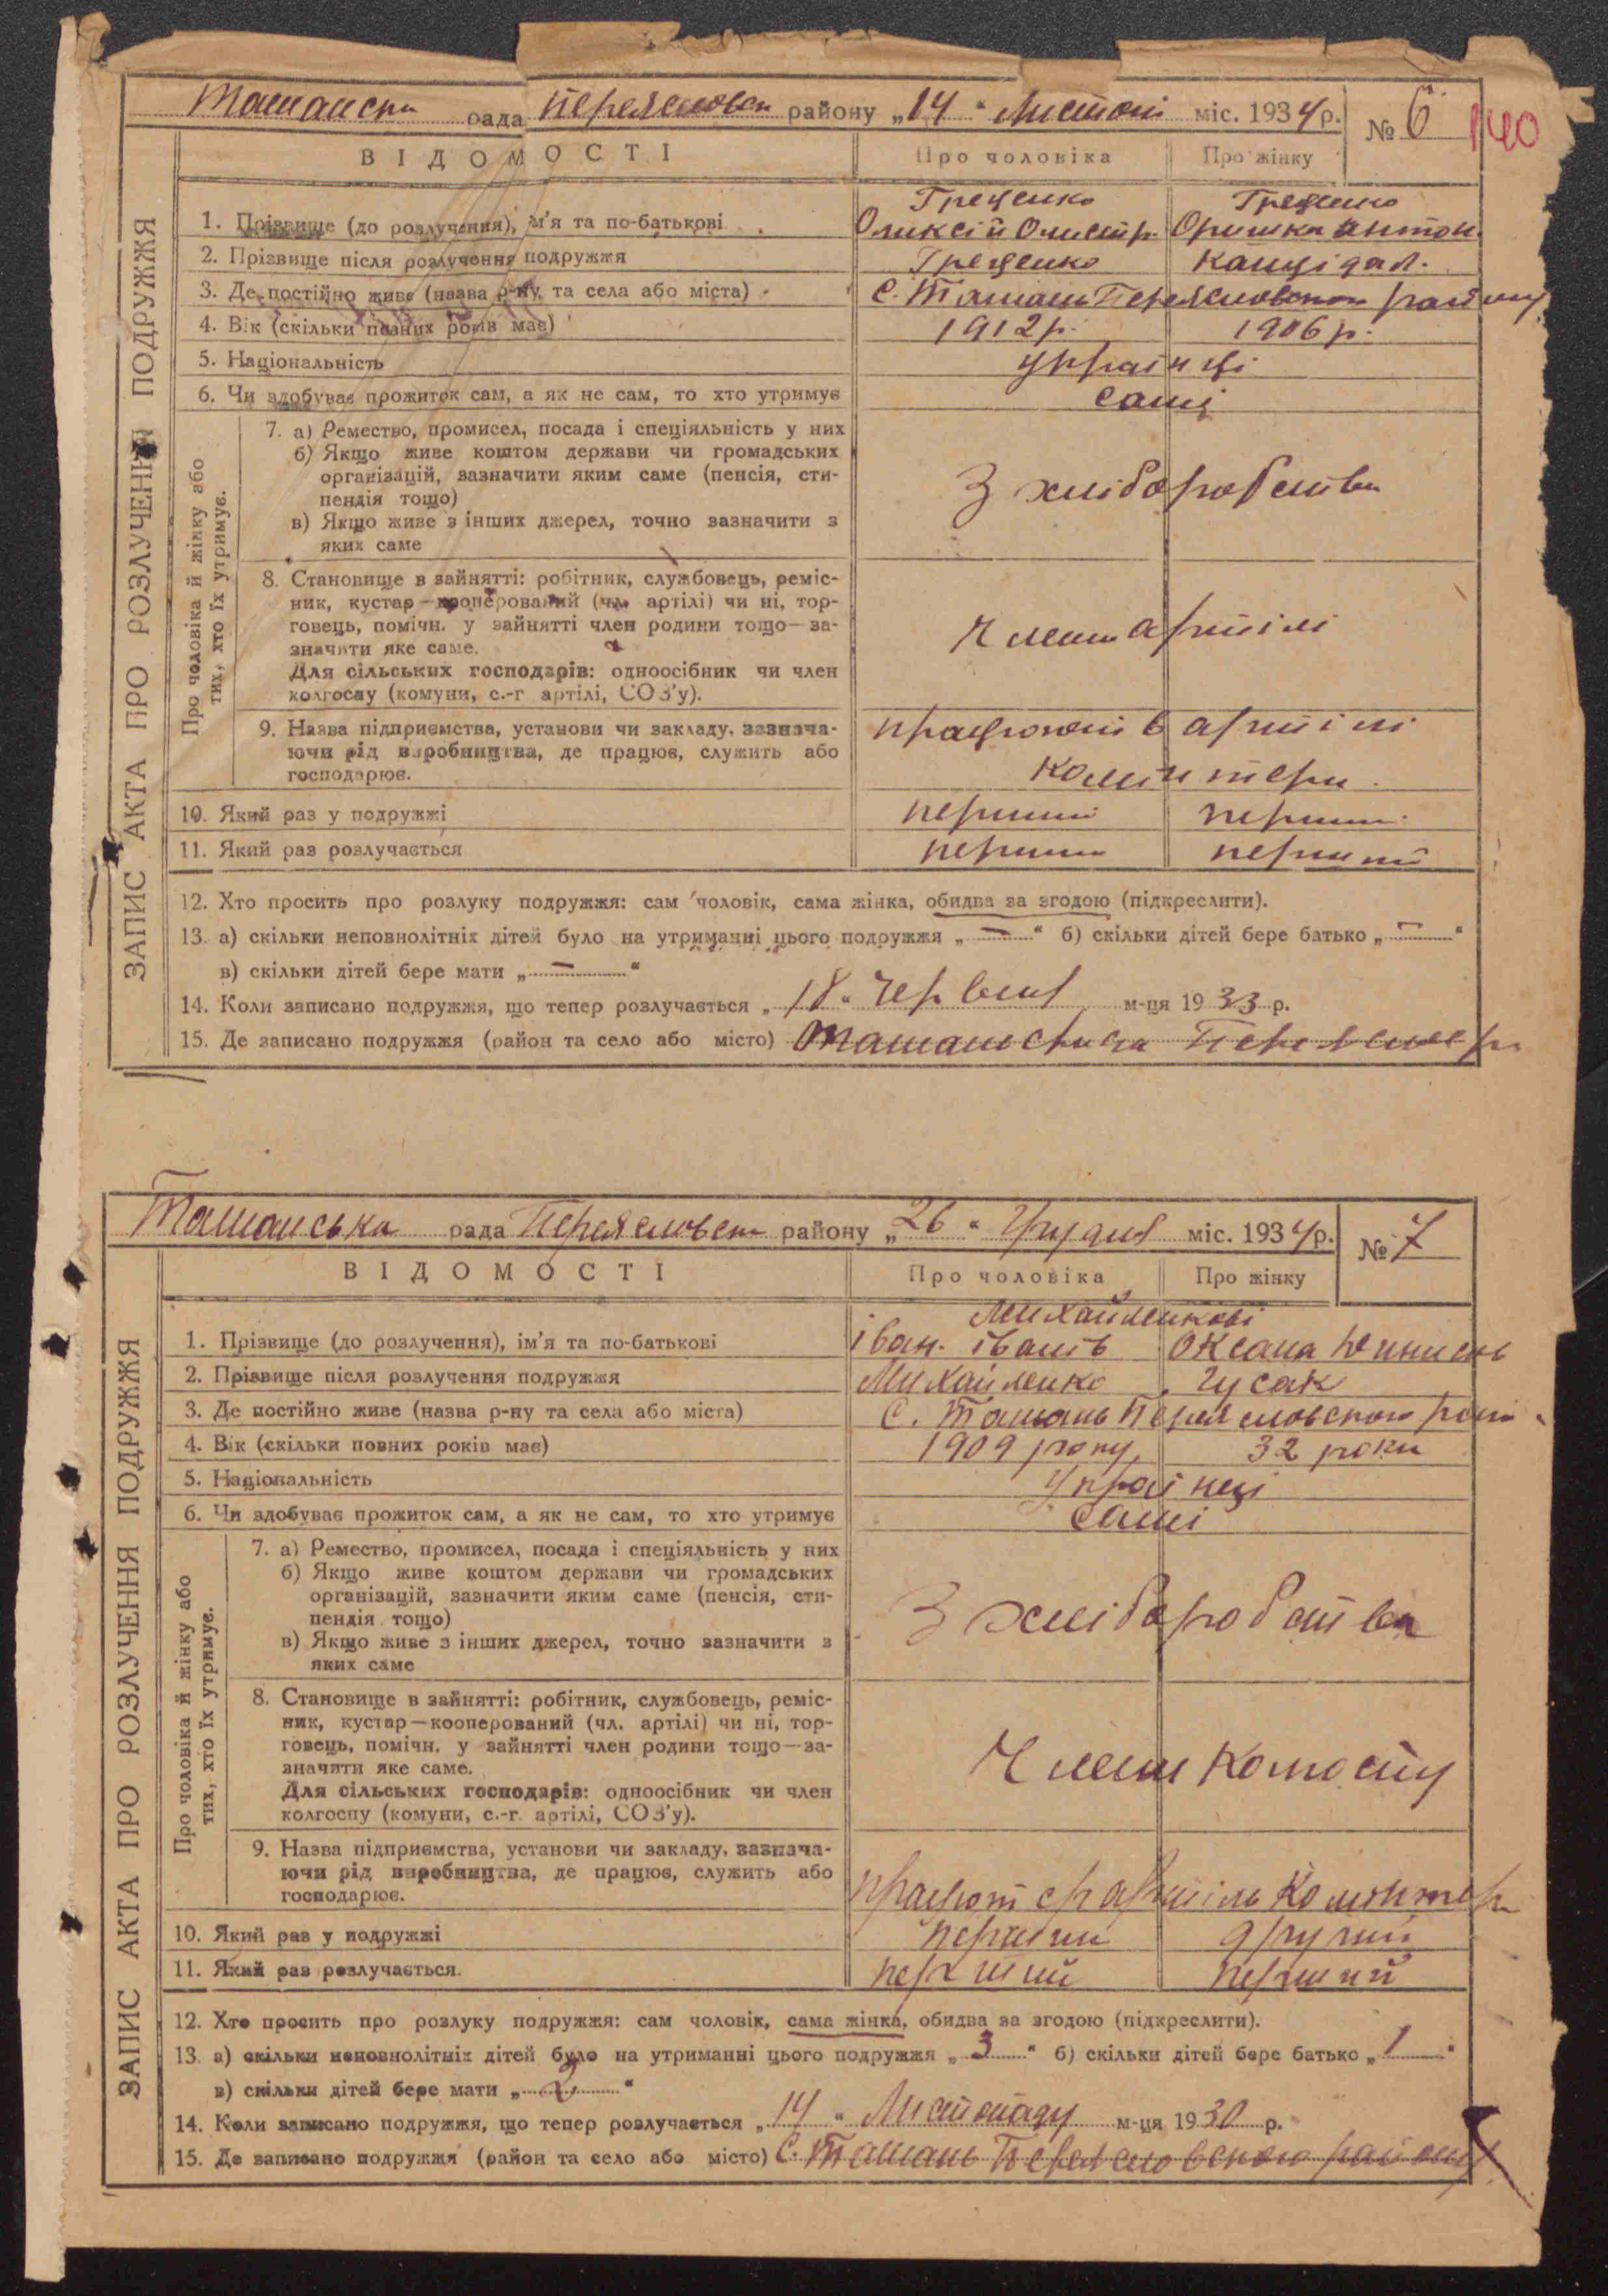 Ташанска рада Переяславск району „14“ Листопа міс. 1934 р. № 6 140
ВІДОМОСТІ Про чоловіка Про жінку
ЗАПИС АКТА ПРО РОЗЛУЧЕННЯ ПОДРУЖЖЯ
Греценко Греценко
1. Прізвище (до розлучення), ім’я та по-батькові Олексій Оришка Антон.
2. Прізвище після розлучення подружжя Греценко
3. Де постійно живе (назва р-ну та села або міста) С. Ташань району
4. Вік (скільки повних років має) 1912 р. 1906 р.
5. Національність українці
6. Чи здобуває прожиток сам, а як не сам, то хто утримує самі
Про чоловіка й жінку або
тих, хто їх утримує.
7. а) Ремество, промисел, посада і спеціяльність у них
б) Якщо живе коштом держави чи громадських
організацій, зазначити яким саме (пенсія, сти-
пендія тощо)
в) Якщо живе з інших джерел, точно зазначити з
яких саме
З хліборобства
8. Становище в зайнятті: робітник, службовець, реміс-
ник, кустар—кооперований (чл. артілі) чи ні, тор-
говець, помічн. у зайнятті член родини тощо—за-
значити яке саме.
Для сільських господарів: одноосібник чи член
колгоспу (комуни, с.-г артілі, СОЗ’у).
Член артілі
9. Назва підприємства, установи чи закладу, зазнача-
ючи рід виробництва, де працює, служить або
господарює.
працюють в артілі
Комінтерн.
10. Який раз у подружжі перший перший
11. Який раз розлучається перший перший
12. Хто просить про розлуку подружжя: сам чоловік, сама жінка, обидва за згодою (підкреслити).
13. а) скільки неповнолітніх дітей було на утриманні цього подружжя „ — “ б) скільки дітей бере батько „ — “
в) скільки дітей бере мати „ — “
14. Коли записано подружжя, що тепер розлучається „ 18 “ Червня м-ця 1933 р.
15. Де записано подружжя (район та село або місто)
Ташанська рада Переяславск району „26“ Грудня міс. 1934 р. № 7
ВІДОМОСТІ Про чоловіка Про жінку
ЗАПИС АКТА ПРО РОЗЛУЧЕННЯ ПОДРУЖЖЯ
Михайленкові
1. Прізвище (до розлучення), ім’я та по-батькові Іван. Іванів Оксана
2. Прізвище після розлучення подружжя Михайленко Гусак
3. Де постійно живе (назва р-ну та села або міста) С. Ташань Переяславского
4. Вік (скільки повних років має) 1909 року 32 роки
5. Національність Українці
6. Чи здобуває прожиток сам, а як не сам, то хто утримує Самі
Про чоловіка й жінку або
тих, хто їх утримує.
7. а) Ремество, промисел, посада і спеціяльність у них
б) Якщо живе коштом держави чи громадських
організацій, зазначити яким саме (пенсія, сти-
пендія тощо)
в) Якщо живе з інших джерел, точно зазначити з
яких саме
З хліборобства
8. Становище в зайнятті: робітник, службовець, реміс-
ник, кустар—кооперований (чл. артілі) чи ні, тор-
говець, помічн. у зайнятті член родини тощо—за-
значити яке саме.
Для сільських господарів: одноосібник чи член
колгоспу (комуни, с.-г. артілі, СОЗ’у).
Член
9. Назва підприємства, установи чи закладу, зазнача-
ючи рід виробництва, де працює, служить або
господарює.
артіль Комінтерн
10. Який раз у подружжі перший другий
11. Який раз розлучається. перший перший
12. Хто просить про розлуку подружжя: сам чоловік, сама жінка, обидва за згодою (підкреслити).
13. а) скільки неповнолітніх дітей було на утриманні цього подружжя „ 3 “ б) скільки дітей бере батько „ 1 “
в) скільки дітей бере мати „ 2 “
14. Коли записано подружжя, що тепер розлучається „ 14 “ Листопаду м-ця 1930 р.
15. Де записано подружжя (район та село або місто) С. Ташань Переяславского району